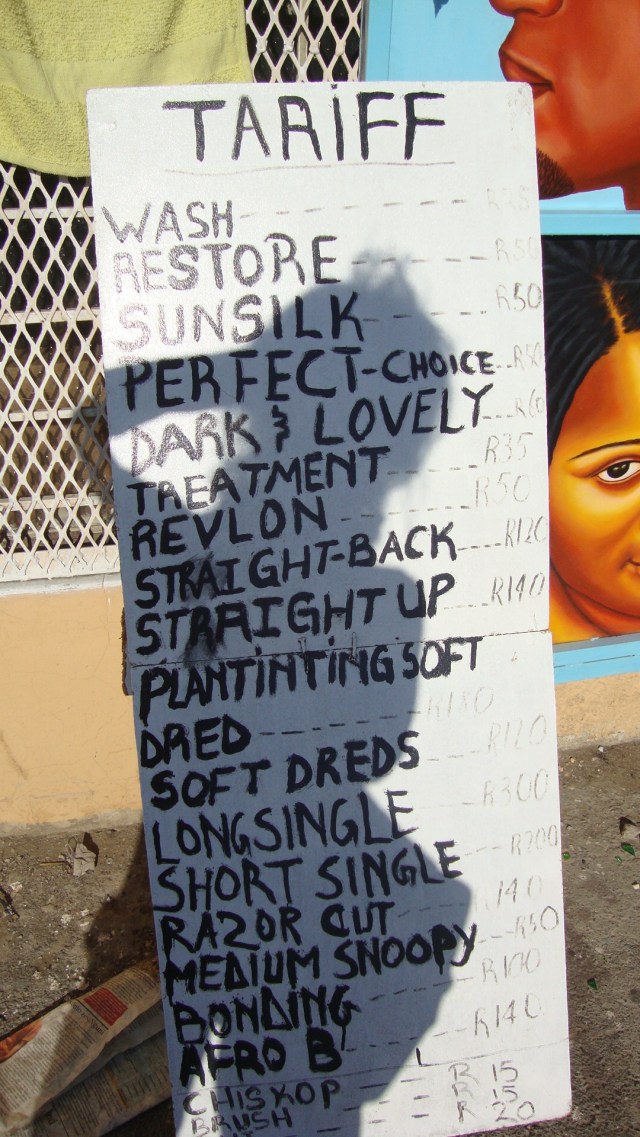 TARIFF
WASH
RESTORE --- R50
SUNSILK --- R50
PERFECT-CHOICE -- R50
DARK & LOVELY -- R60
TREATMENT --- R35
REVLON --- R50
STRAIGHT-BACK --- R120
STRAIGHT UP --- R140
PLANTINTING SOFT
DRED --- R180
SOFT DREDS --- R120
LONGSINGLE --- R300
SHORT SINGLE --- R200
RAZOR CUT
MEDIUM SNOOPY
BONDING --- R100
AFRO B --- R140
CHISKOP -- R 15
BRUSH -- R 15
R 20